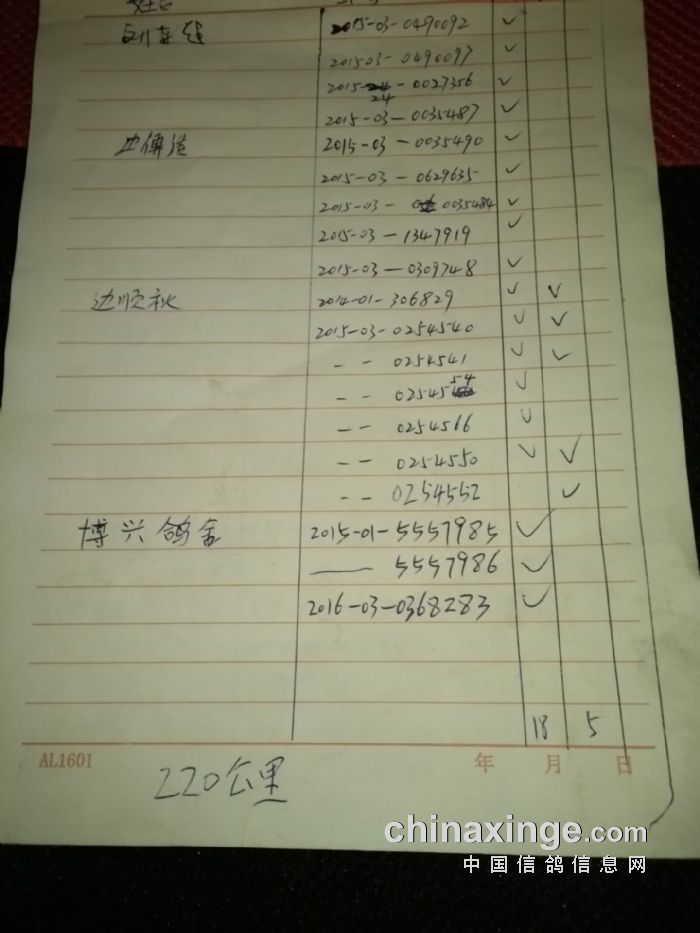 2015-03-0490092 ✓
2015-03-0490097 ✓
2015-24-0027356 ✓
2015-03-0035487 ✓
2015-03-0035490 ✓
2015-03-0629635 ✓
2015-03-0035484 ✓
2015-03-1347919 ✓
2015-03-0309748 ✓
边顺秋 2014-01-306829 ✓ ✓
2015-03-0254540 ✓ ✓
-- 0254541 ✓ ✓
-- 0254554 ✓
-- 0254566 ✓
-- 0254550 ✓ ✓
-- 0254552 ✓
博兴鸽舍 2015-01-5557985 ✓
—— 5557986 ✓
2016-03-0368283 ✓
18 5
AL1601 年 月 日
220公里
chinaxinge.com
中国信鸽信息网